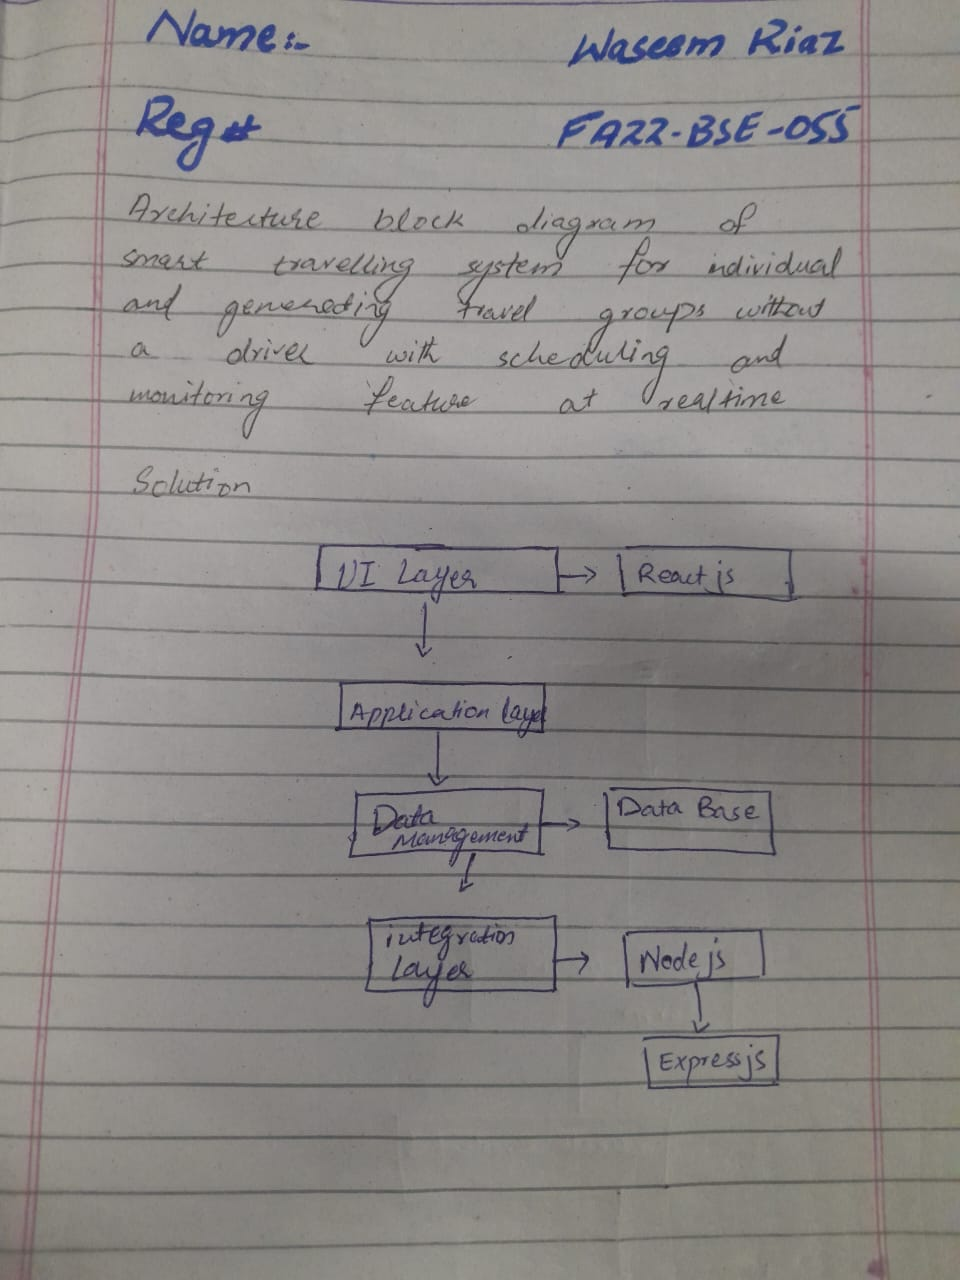 Name:-
Waseem Riaz
Reg#
FA22-BSE-055
Architecture block diagram of
smart travelling system for individual
and genereting travel groups without
a driver with scheduling and
monitoring feature at realtime
Solution
UI Layer
React js
Application layer
Data
Management
Data Base
integration
layer
Node js
Express js